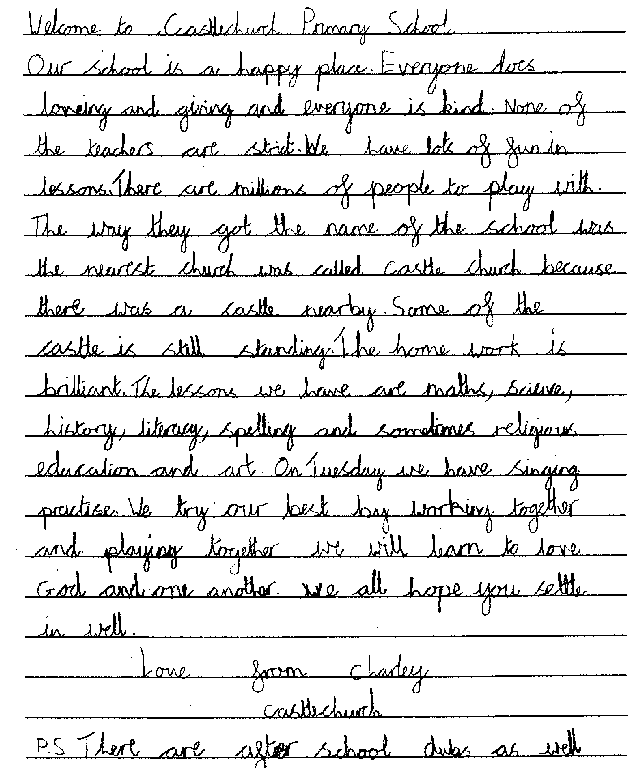 Welcome to Castlechurch Primary School
Our school is a happy place. Everyone does
loveing and giving and everyone is kind. None of
the teachers are strict. We have lots of fun in
lessons. There are millions of people to play with.
The way they got the name of the school was
the nearest church was called castle church because
there was a castle nearby. Some of the
castle is still standing. The home work is
brilliant. The lessons we have are maths, science,
history, literacy, spelling and sometimes religious
education and art. On Tuesday we have singing
practise. We try our best by working together
and playing together we will learn to love
God and one another. We all hope you settle
in well.
Love from Charley
Castlechurch
P.S There are after school clubs as well